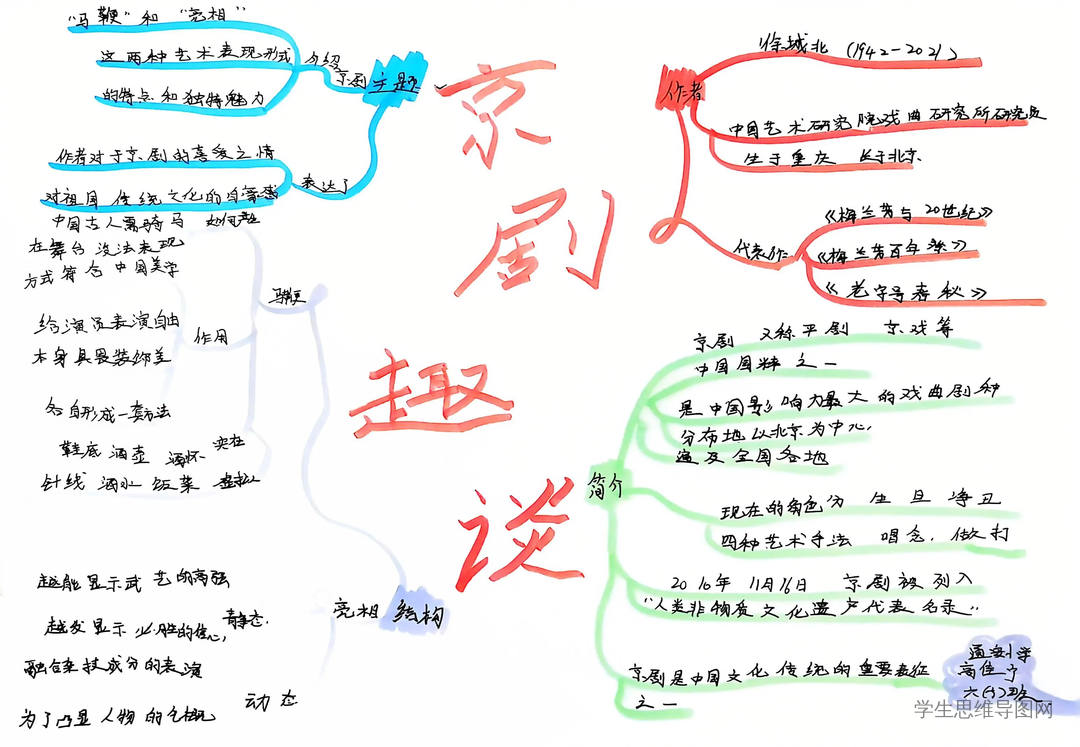 京
剧
趣
谈
主题
介绍
京剧
"马鞭"和"亮相"
这两种艺术表现形式
的特点和独特魅力
表达了
作者对于京剧的喜爱之情
对祖国传统文化的自豪感
作者
徐城北 (1942-2021)
中国艺术研究院戏曲研究所研究员
生于重庆 长于北京
代表作
《梅兰芳与20世纪》
《梅兰芳百年祭》
《老字号春秋》
简介
京剧 又称平剧 京戏等
中国国粹之一
是中国影响力最大的戏曲剧种
分布地以北京为中心,
遍及全国各地
现在的角色分 生 旦 净 丑
四种艺术手法 唱念,做打
2010年11月16日 京剧被列入
"人类非物质文化遗产代表名录"
京剧是中国文化传统的重要表征
之一
结构
马鞭
中国古人需骑马
在舞台没法表现
方式符合中国美学
作用
给演员表演自由
本身具装饰美
各自形成一套方法
鞋底 酒壶 酒杯 实在
针线 酒水 饭菜 虚拟
亮相
越能显示武艺的高强
越发显示必胜的信心, 静态.
融合杂技成分的表演
为了凸显人物的气概
动态
六(1)班
学生思维导图网